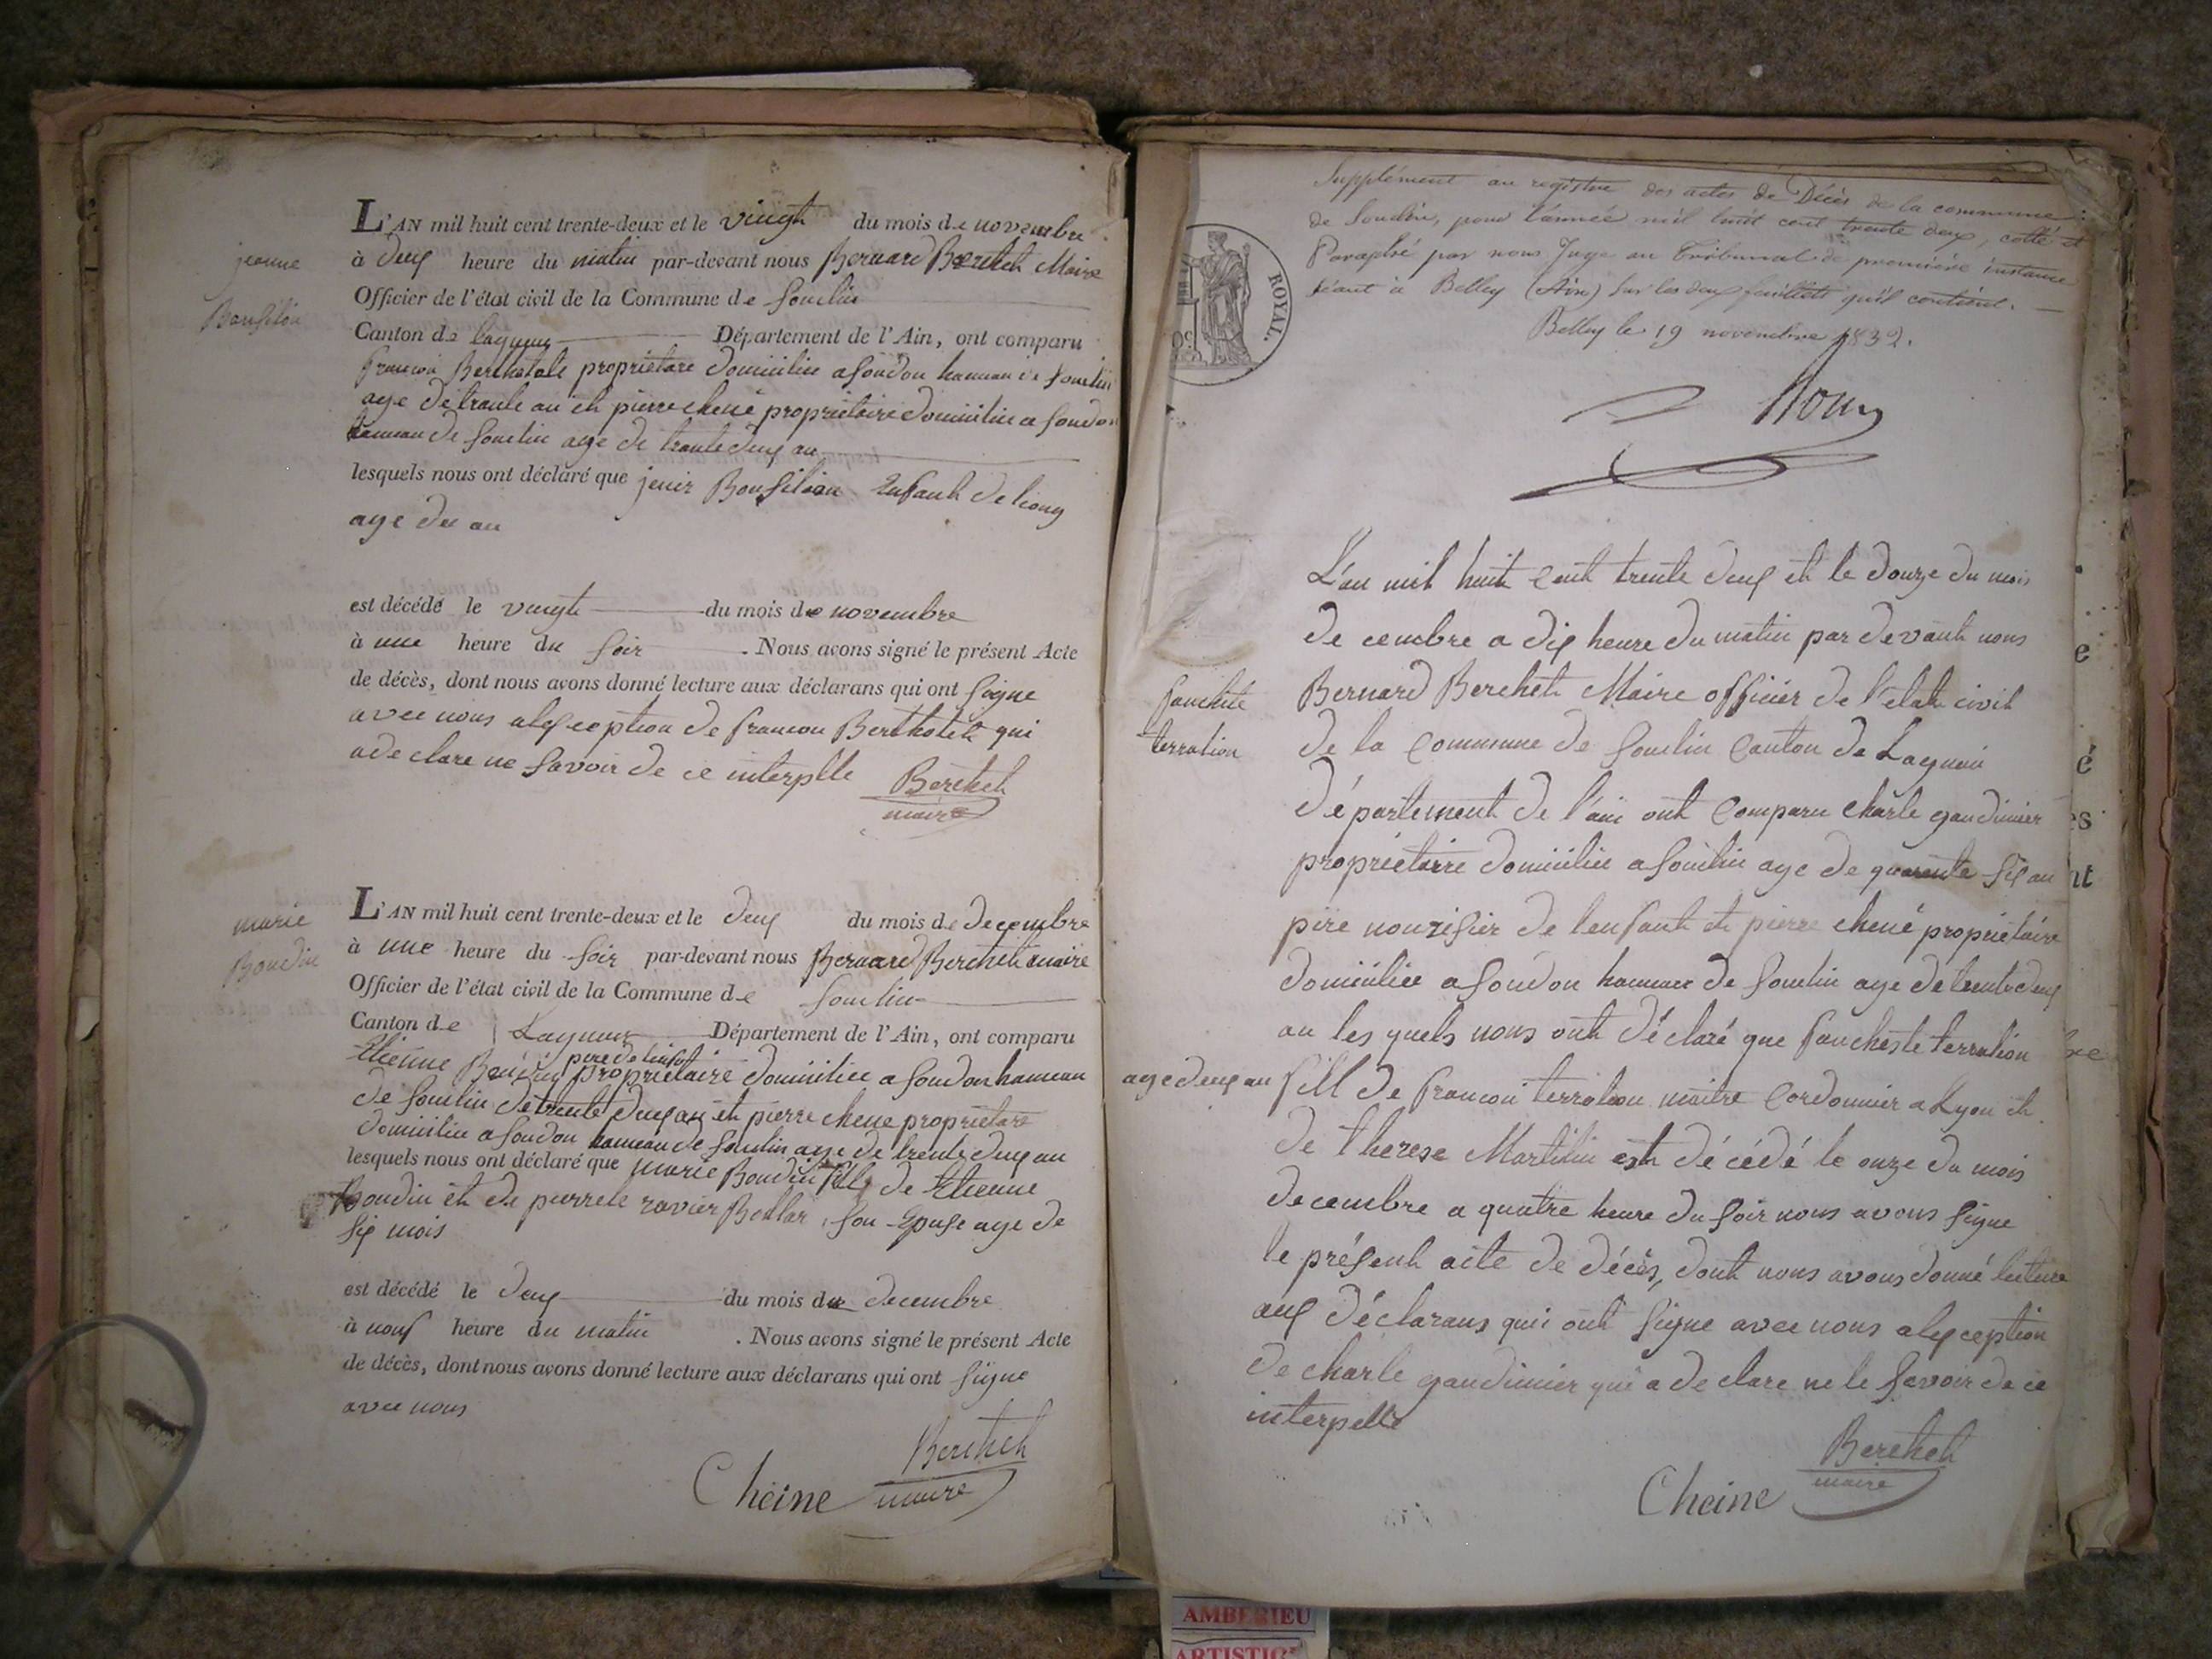 jeanne
Bonfilion
L'AN mil huit cent trente-deux et le vingt du mois de novembre
à deux heure du matin par-devant nous Bernard Berchet Maire
Officier de l'état civil de la Commune de Souclin
Canton de lagnieu Département de l'Ain, ont comparu
propriétare domicilie a soudon hamau de Souclin
age de trante an et pierre chene proprietaire domicilie a soudon
hamau de souclin age de trante deux an
lesquels nous ont déclaré que Bonfilion Enfant de
age du an
est décédé le vingt du mois de novembre
à une heure du soir . Nous avons signé le présent Acte
de décès, dont nous avons donné lecture aux déclarans qui ont signe
avec nous alexception de francon Berthotet qui
a de clare ne savoir de ce interplle
Berchet
maire
marie
Boudin
L'AN mil huit cent trente-deux et le deux du mois de decembre
à une heure du soir par-devant nous Bernard Berchet maire
Officier de l'état civil de la Commune de souclin
Canton de Lagnieu Département de l'Ain, ont comparu
pere de
Etienne propriétaire domicilie a soudon hameau
de souclin de trente deux an et pierre chene proprietare
domicilie a soudon hameau de souclin age de trente deux an
lesquels nous ont déclaré que marie Boudin fille de Etienne
Boudin et de pierrete ravier son Epuse age de
six mois
est décédé le deux du mois de decembre
à nouf heure du matin . Nous avons signé le présent Acte
de décès, dont nous avons donné lecture aux déclarans qui ont signe
avec nous
Berchet
Cheine maire
Supplément au registre des actes de Décès de la commune
de Souclin, pour l'année mil huit cent trente deux, cotté et
Paraphé par nous Juge au Tribunal de première instance
séant à Belley (Ain) sur les deux feuillets qu'il contient.
Belley le 19 novembre 1832.
ROYAL.
L'an mil huit cent trente deux et le douze du mois
de cembre a dix heure du matin par devant nous
fanchite
terration
Bernard Berchet Maire officier de l'etat civil
de la commune de souclin canton de Lagnieu
département de l'ain ont comparu charle gandinier
propriétaire domicilie a souclin age de quarente six an
père nourisier de lenfant et pierre chené propriétaire
domicilie a soudon hamau de souclin age de trente deux
an les quels nous ont déclaré que terration
age deux an
fill de francoi terration maitre cordonnier a Lyon et
de therese Martilin est décédé le onze du mois
decembre a quatre heure du soir nous avons signe
le présent acte de décès, dont nous avons donné lecture
aux déclarans qui ont signe avec nous alexception
de charle gandinier qui a de clare ne le savoir de ce
interpelle
Berchet
maire
Cheine
AMBERIEU